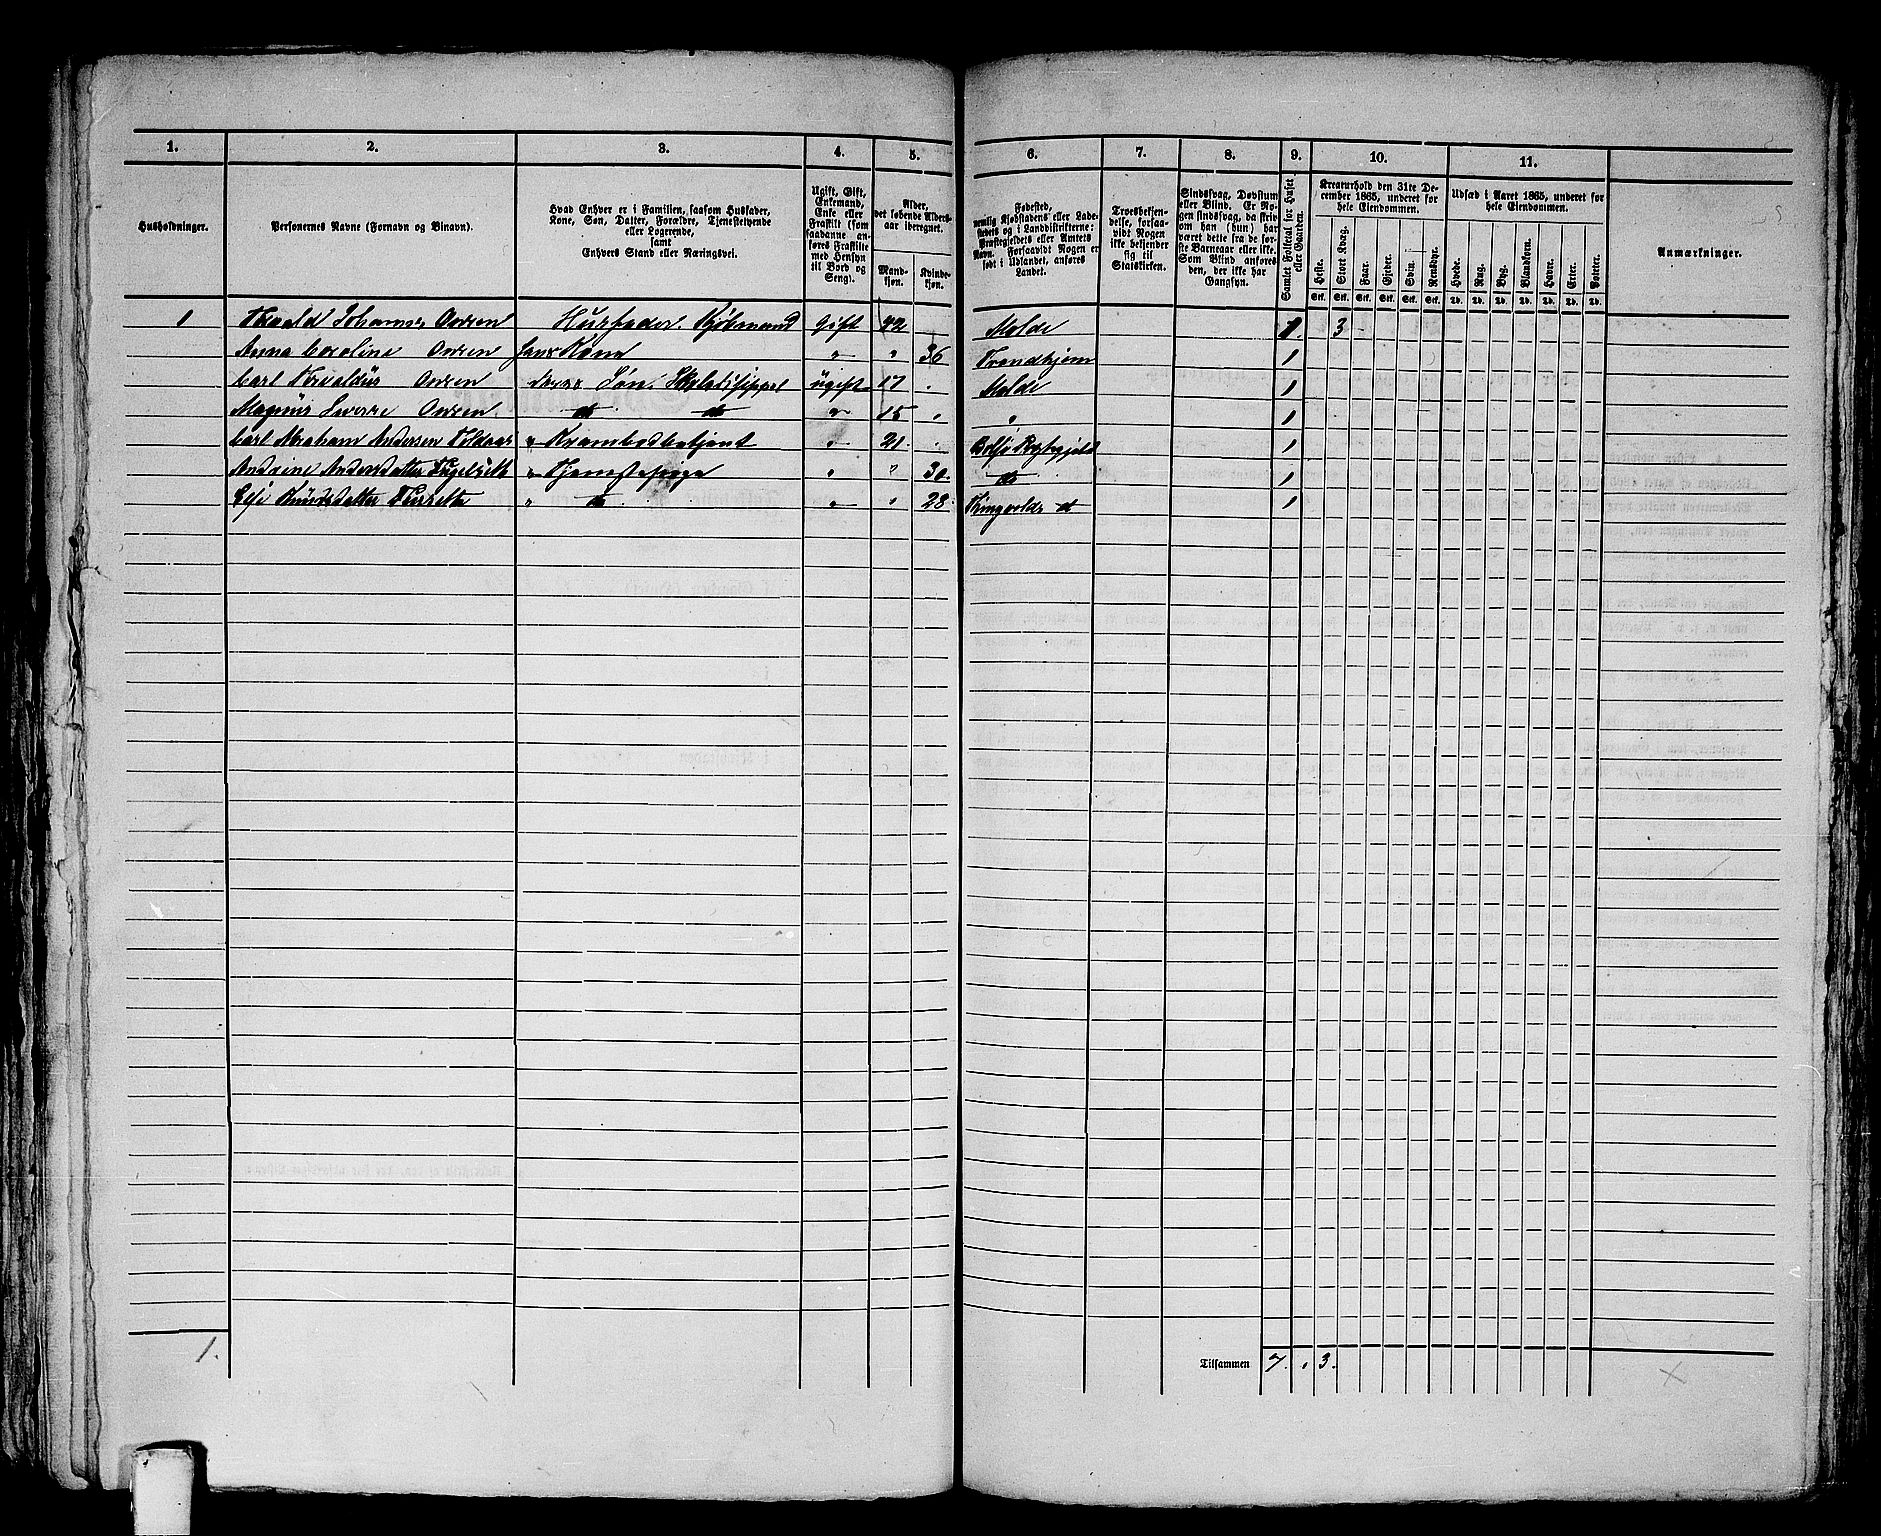 1. 2. 3. 4. 5. 6. 7. 8. 9. 10. 11.
Husholdninger.
Personernes Navne (Fornavn og Binavn).
Hvad Enhver er i Familien, saasom Husfader,
Kone, Søn, Datter, Forældre, Tjenestetyende
eller Logerende,
samt
Enhvers Stand eller Næringsvei.
Ugift, Gift,
Enkemand,
Enke eller
Fraskilt (som
saadanne an-
føres Fraskilte
med Hensyn
til Bord og
Seng).
Alder,
det løbende Alders-
aar iberegnet.
Mand-
kjøn.
Kvinde-
kjøn.
Fødested,
nemlig Kjøbstadens eller Lade-
stedets og i Landdistrikterne:
Præstegjeldets eller Amtets
Navn. Forsaavidt Nogen er
født i Udlandet, anføres
Landet.
Troesbekjen-
delse, forsaa-
vidt Nogen
ikke bekjender
sig til
Statskirken.
Sindssvag, Døvstum
eller Blind. Er No-
gen sindssvag, da skriv
om han (hun) har
været dette fra de før-
ste Barneaar eller ikke.
Som Blind anføres
den, der ikke har
Gangsyn.
Samlet Folketal for Huset
eller Gaarden.
Kreaturhold den 31te De-
cember 1865, underet for
hele Eiendommen.
Heste. Stort Kvæg. Faar. Gjeder. Svin. Rensdyr.
Stk. Stk. Stk. Stk. Stk. Stk.
Udsæd i Aaret 1865, underet for
hele Eiendommen.
Hvede. Rug. Byg. Blandkorn. Havre. Erter. Poteter.
Td. Td. Td. Td. Td. Td. Td.
Anmærkninger.
1 Johannes Owren Husfader. Kjøbmand Gift 42 Molde 1. 3
Anna Caroline Owren hans Kone " " 36 Trondhjem 1
Carl Owren deres Søn. ugift 17 . Molde 1
Magnus Owren d d " 15 " " 1
Carl Abraham Andersen " Krambodbetjent " 21. . Bolsø 1
Andrine Andersdatter " Tjenestepige " " 30. d 1
Knudsdatter " d " " 28. d 1
1.
Tilsammen 7. . 3.